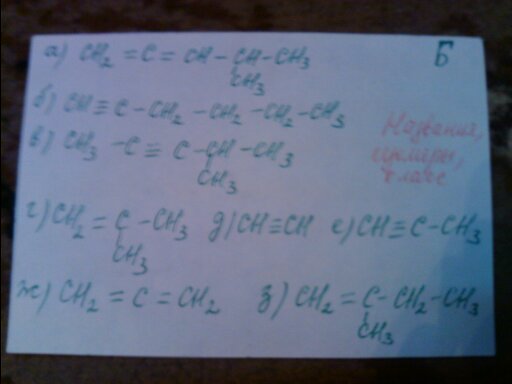 Б
а) CH₂ = C = CH – CH – CH₃
CH₃
б) CH ≡ C – CH₂ – CH₂ – CH₂ – CH₃
в) CH₃ – C ≡ C – CH – CH₃
CH₃
Названия,
изомеры,
класс
г) CH₂ = C – CH₃ д) CH ≡ CH е) CH ≡ C – CH₃
CH₃
ж) CH₂ = C = CH₂ з) CH₂ = C – CH₂ – CH₃
CH₃